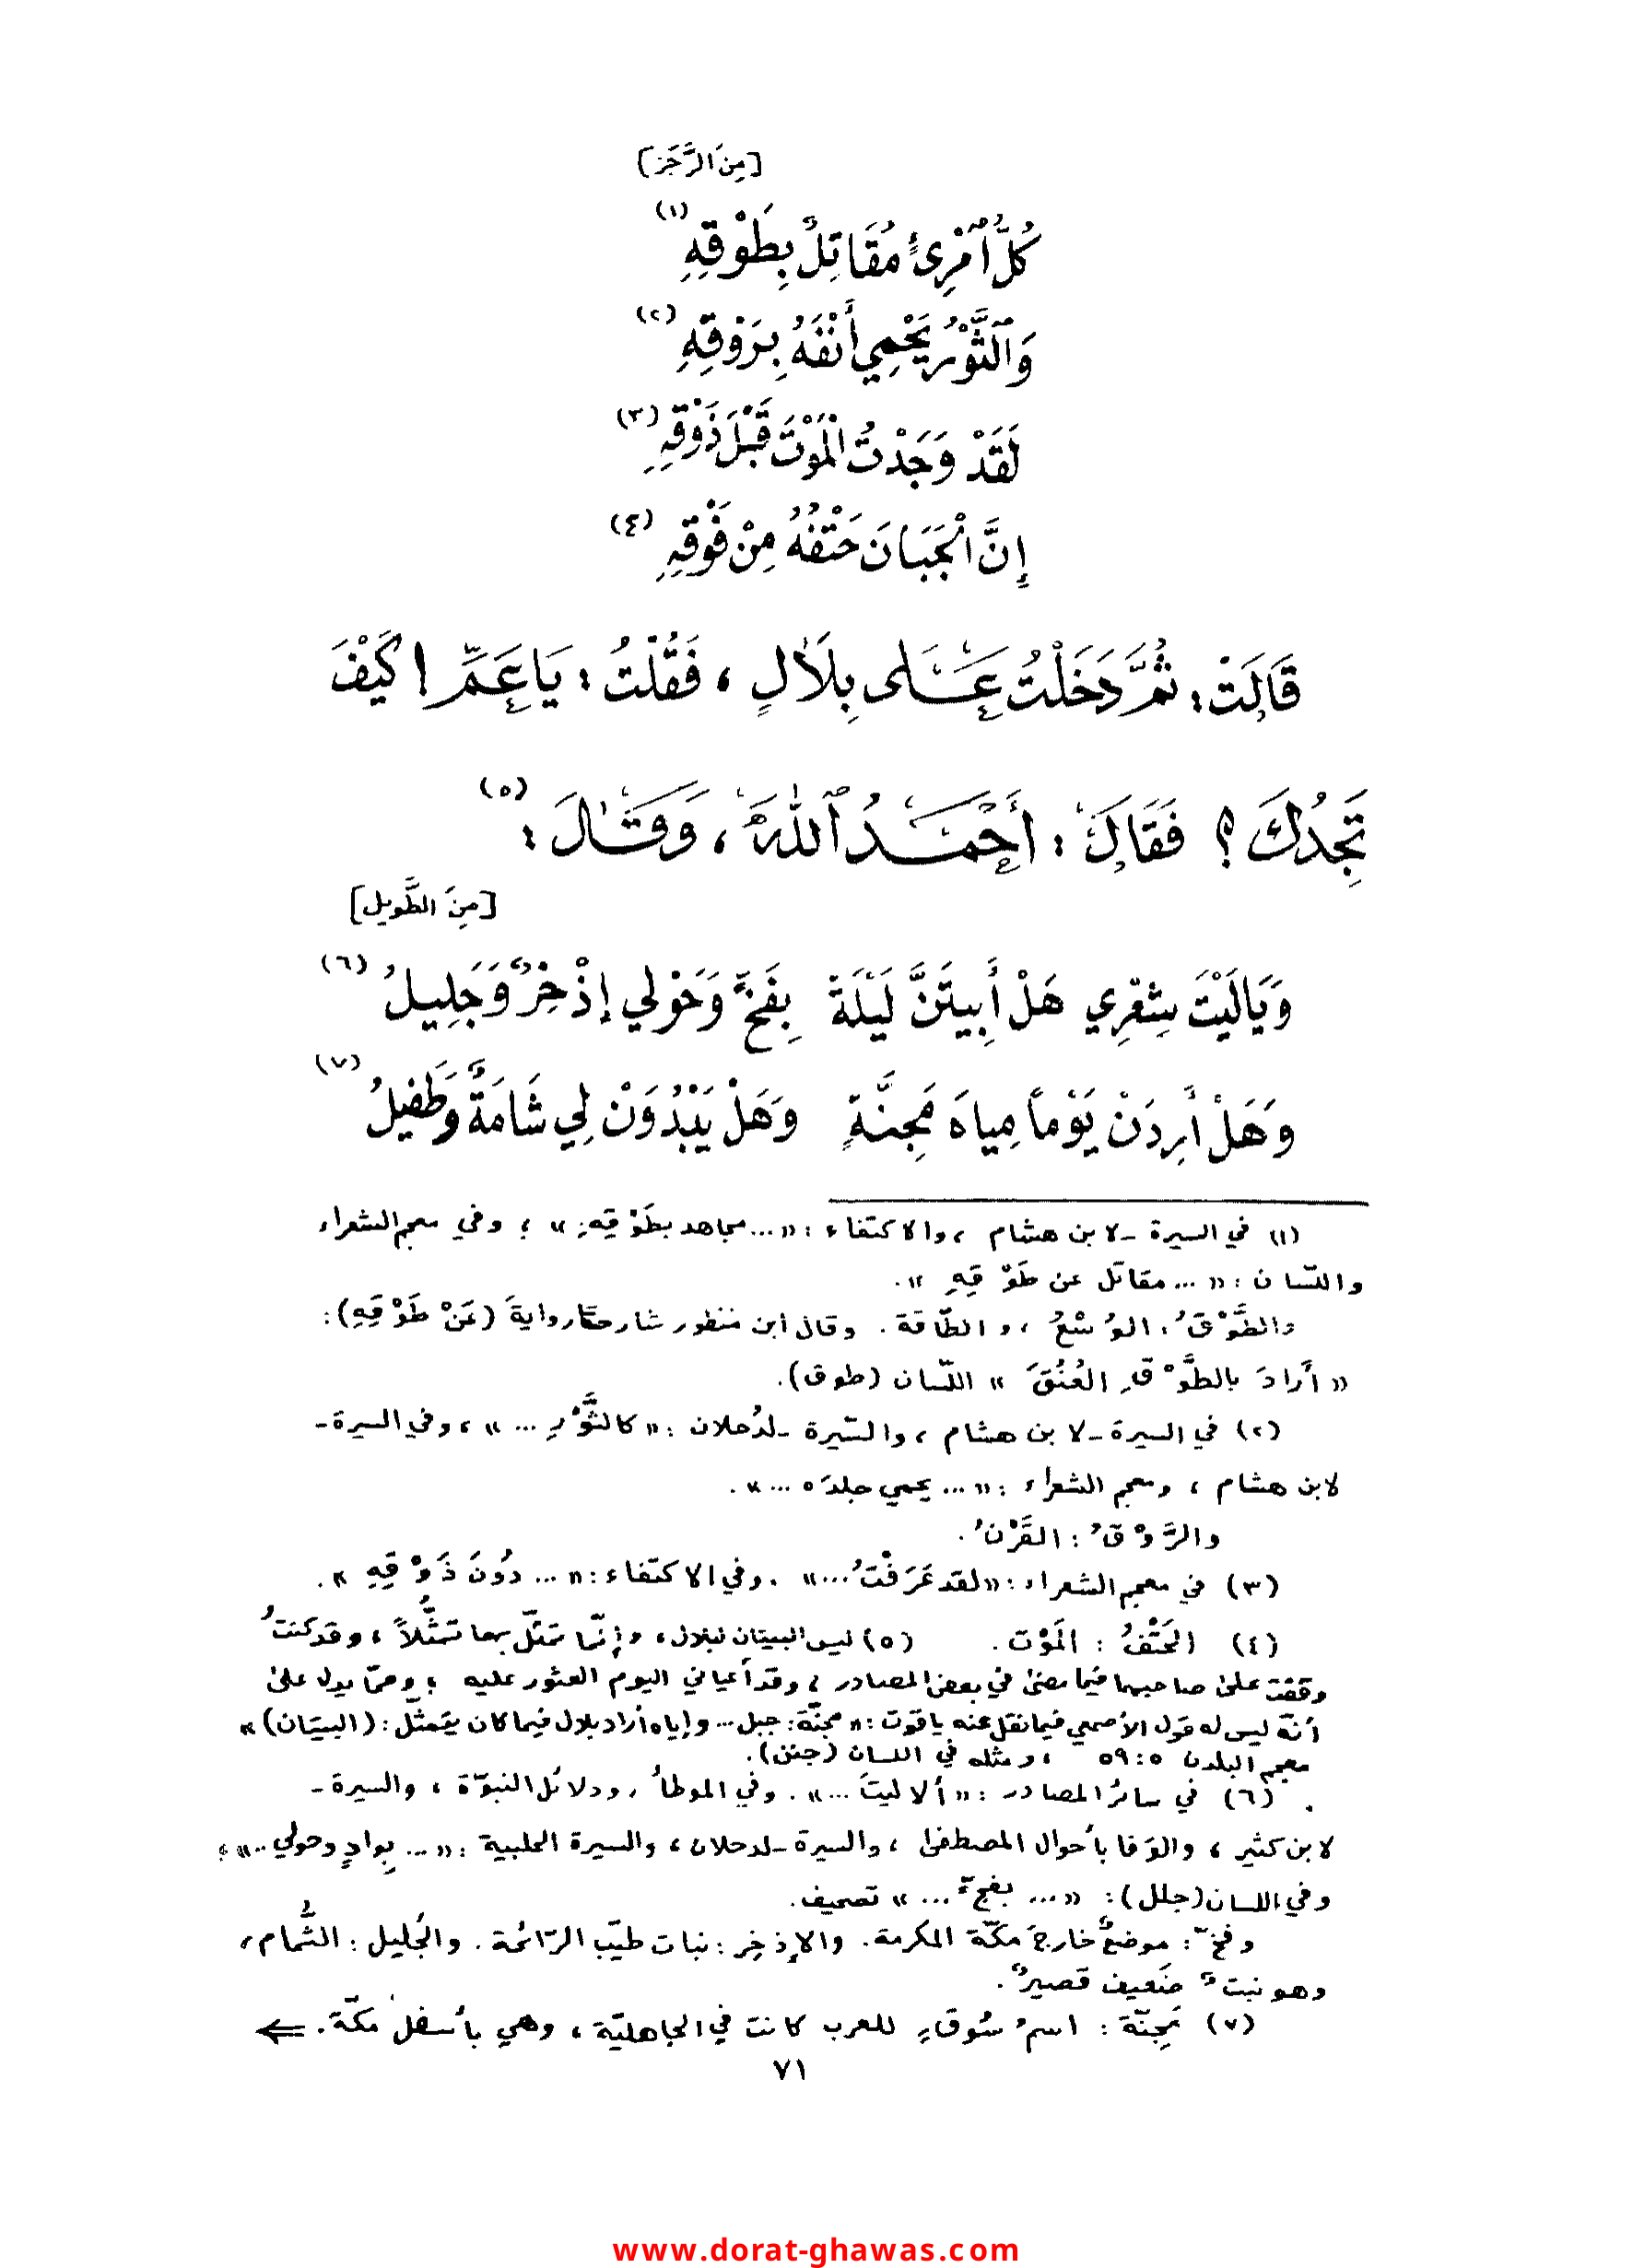 [مِنَ الرَّجَز]
كُلُّ ٱمْرِئٍ مُقَاتِلٌ بِطَوْقِهِ (١)
وَٱلثَّوْرُ يَحْمِي أَنْفَهُ بِرَوْقِهِ (٢)
لَقَدْ وَجَدْتُ الْمَوْتَ قَبْلَ ذَوْقِهِ (٣)
إِنَّ الْجَبَانَ حَتْفُهُ مِنْ فَوْقِهِ (٤)
قَالَتْ: ثُمَّ دَخَلْتُ عَلَى بِلَالٍ، فَقُلْتُ: يَا عَمِّ! كَيْفَ
تَجِدُكَ؟ فَقَالَ: أَحْمَدُ ٱللهَ، وَقَالَ: (٥)
[مِنَ الطَّويل]
وَيَا لَيْتَ شِعْرِي هَلْ أَبِيتَنَّ لَيْلَةً بِفَخٍّ وَحَوْلي إذْخِرٌ وَجَلِيلُ (٦)
وَهَلْ أَرِدَنْ يَوْماً مِياهَ مَجِنَّةٍ وَهَلْ يَبْدُوَنْ لِي شَامَةٌ وَطَفِيلُ (٧)
(١) في السيرة - لابن هشام، والاكتفاء: «... مجاهد بطَوْقِهِ» ؛ وفي معجم الشعراء
واللّسان: «... مقاتل عن طَوْقِهِ».
والطَّوْقُ: الوُسْعُ، والطّاقة. وقال ابن منظور شارحاً رواية (عَنْ طَوْقِهِ):
«أَرادَ بالطَّوْقِ العُنُقَ» اللّسان (طوق).
(٢) في السيرة - لابن هشام، والسّيرة - لدُحلان: «كالثَّوْرِ ...»، وفي السيرة -
لابن هشام، ومعجم الشعراء: «... يحمي جلدَه ...».
والرَّوْقُ: القَرْنُ.
(٣) في معجم الشعراء: «لقد عَرَفْتُ...». وفي الاكتفاء: «... دُونَ ذَوْقِهِ».
(٤) الحَتْفُ: المَوْت. (٥) ليس البيتان لبلال، وإنّما تمثّل بهما تمثُّلاً، وقد كنتُ
وقفت على صاحبهما فيما مضى في بعض المصادر، وقد أعياني اليوم العثور عليه؛ وممّا يدل على
أنّه ليس له قول الأصمعي فيما نقل عنه ياقوت: «مجنّة: جبل... وإياه أراد بلال فيما كان يتمثّل: (البيتان)»
معجم البلدن ٥:٥٩، ومثله في اللسان (جنن).
(٦) في سائر المصادر: «ألا ليتَ ...». وفي الموطأ، ودلائل النبوّة، والسيرة -
لابن كثير، والوَفا بأحوال المصطفى، والسيرة - لدحلان، والسيرة الحلبية: «... بِوادٍ وحولي..»؛
وفي اللسان (جلل): «... بفجٍّ ...» تصحيف.
وفخّ: موضعٌ خارجَ مكّة المكرمة. والإذخِر: نبات طيّب الرّائحة. والجَليل: الثُّمام،
وهو نبتٌ ضَعيف قصيرٌ.
(٧) مَجِنّة: اسمُ سُوقٍ للعرب كانت في الجاهليّة، وهي بأسفل مكّة. ⇐
٧١
www.dorat-ghawas.com